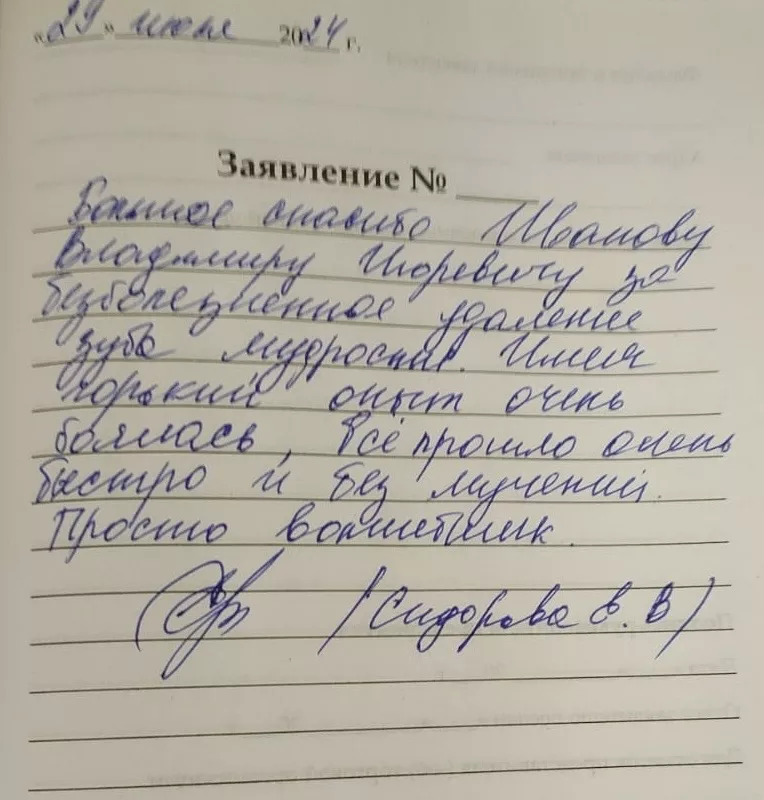 «29» июля 2024 г.
Заявление № ____
Большое спасибо Иванову
Владимиру Игоревичу за
безболезненное удаление
зуба мудрости. Имея
горький опыт очень
боялась, Всё прошло очень
быстро и без мучений.
Просто волшебник.
(Сидорова Е. В)